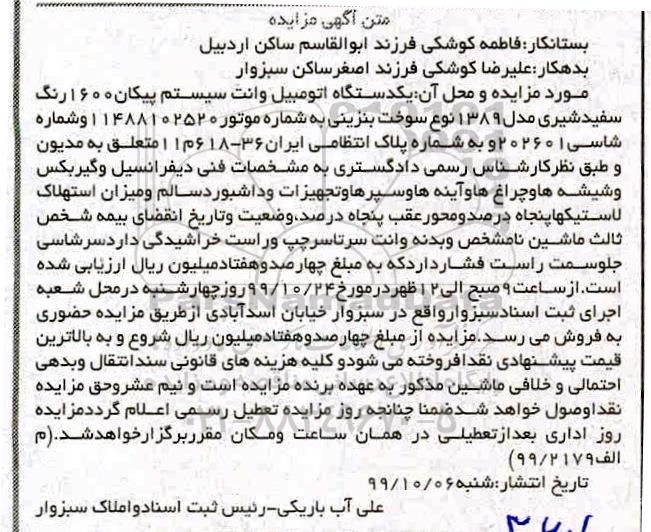 متن آگهی مزایده
بستانکار:فاطمه کوشکی فرزند ابوالقاسم ساکن اردبیل
بدهکار:علیرضا کوشکی فرزند اصغرساکن سبزوار
مورد مزایده و محل آن:یکدستگاه اتومبیل وانت سیستم پیکان۱۶۰۰رنگ
سفیدشیری مدل۱۳۸۹نوع سوخت بنزینی به شماره موتور۱۱۴۸۸۱۰۲۵۲۰وشماره
شاسی۲۰۲۶۰۱و به شماره پلاک انتظامی ایران۳۶-۶۱۸م۱۱متعلق به مدیون
و طبق نظرکارشناس رسمی دادگستری به مشخصات فنی دیفرانسیل وگیربکس
وشیشه هاوچراغ هاوآینه هاوسپرهاوتجهیزات وداشبوردسالم ومیزان استهلاک
لاستیکهاپنجاه درصدومحورعقب پنجاه درصد،وضعیت وتاریخ انقضای بیمه شخص
ثالث ماشین نامشخص وبدنه وانت سرتاسرچپ وراست خراشیدگی داردسرشاسی
جلوسمت راست فشارداردکه به مبلغ چهارصدوهفتادمیلیون ریال ارزیابی شده
است.ازساعت۹صبح الی۱۲ظهردرمورخ۹۹/۱۰/۲۴روزچهارشنبه درمحل شعبه
اجرای ثبت اسنادسبزوارواقع در سبزوار خیابان اسدآبادی ازطریق مزایده حضوری
به فروش می رسد.مزایده از مبلغ چهارصدوهفتادمیلیون ریال شروع و به بالاترین
قیمت پیشنهادی نقدافروخته می شودو کلیه هزینه های قانونی سندانتقال وبدهی
احتمالی و خلافی ماشین مذکور به عهده برنده مزایده است و نیم عشروحق مزایده
نقداوصول خواهد شدضمنا چنانچه روز مزایده تعطیل رسمی اعلام گرددمزایده
روز اداری بعدازتعطیلی در همان ساعت ومکان مقرربرگزارخواهدشد.(م
الف۹۹/۲۱۷۹)
تاریخ انتشار:شنبه۹۹/۱۰/۰۶
علی آب باریکی-رئیس ثبت اسنادواملاک سبزوار